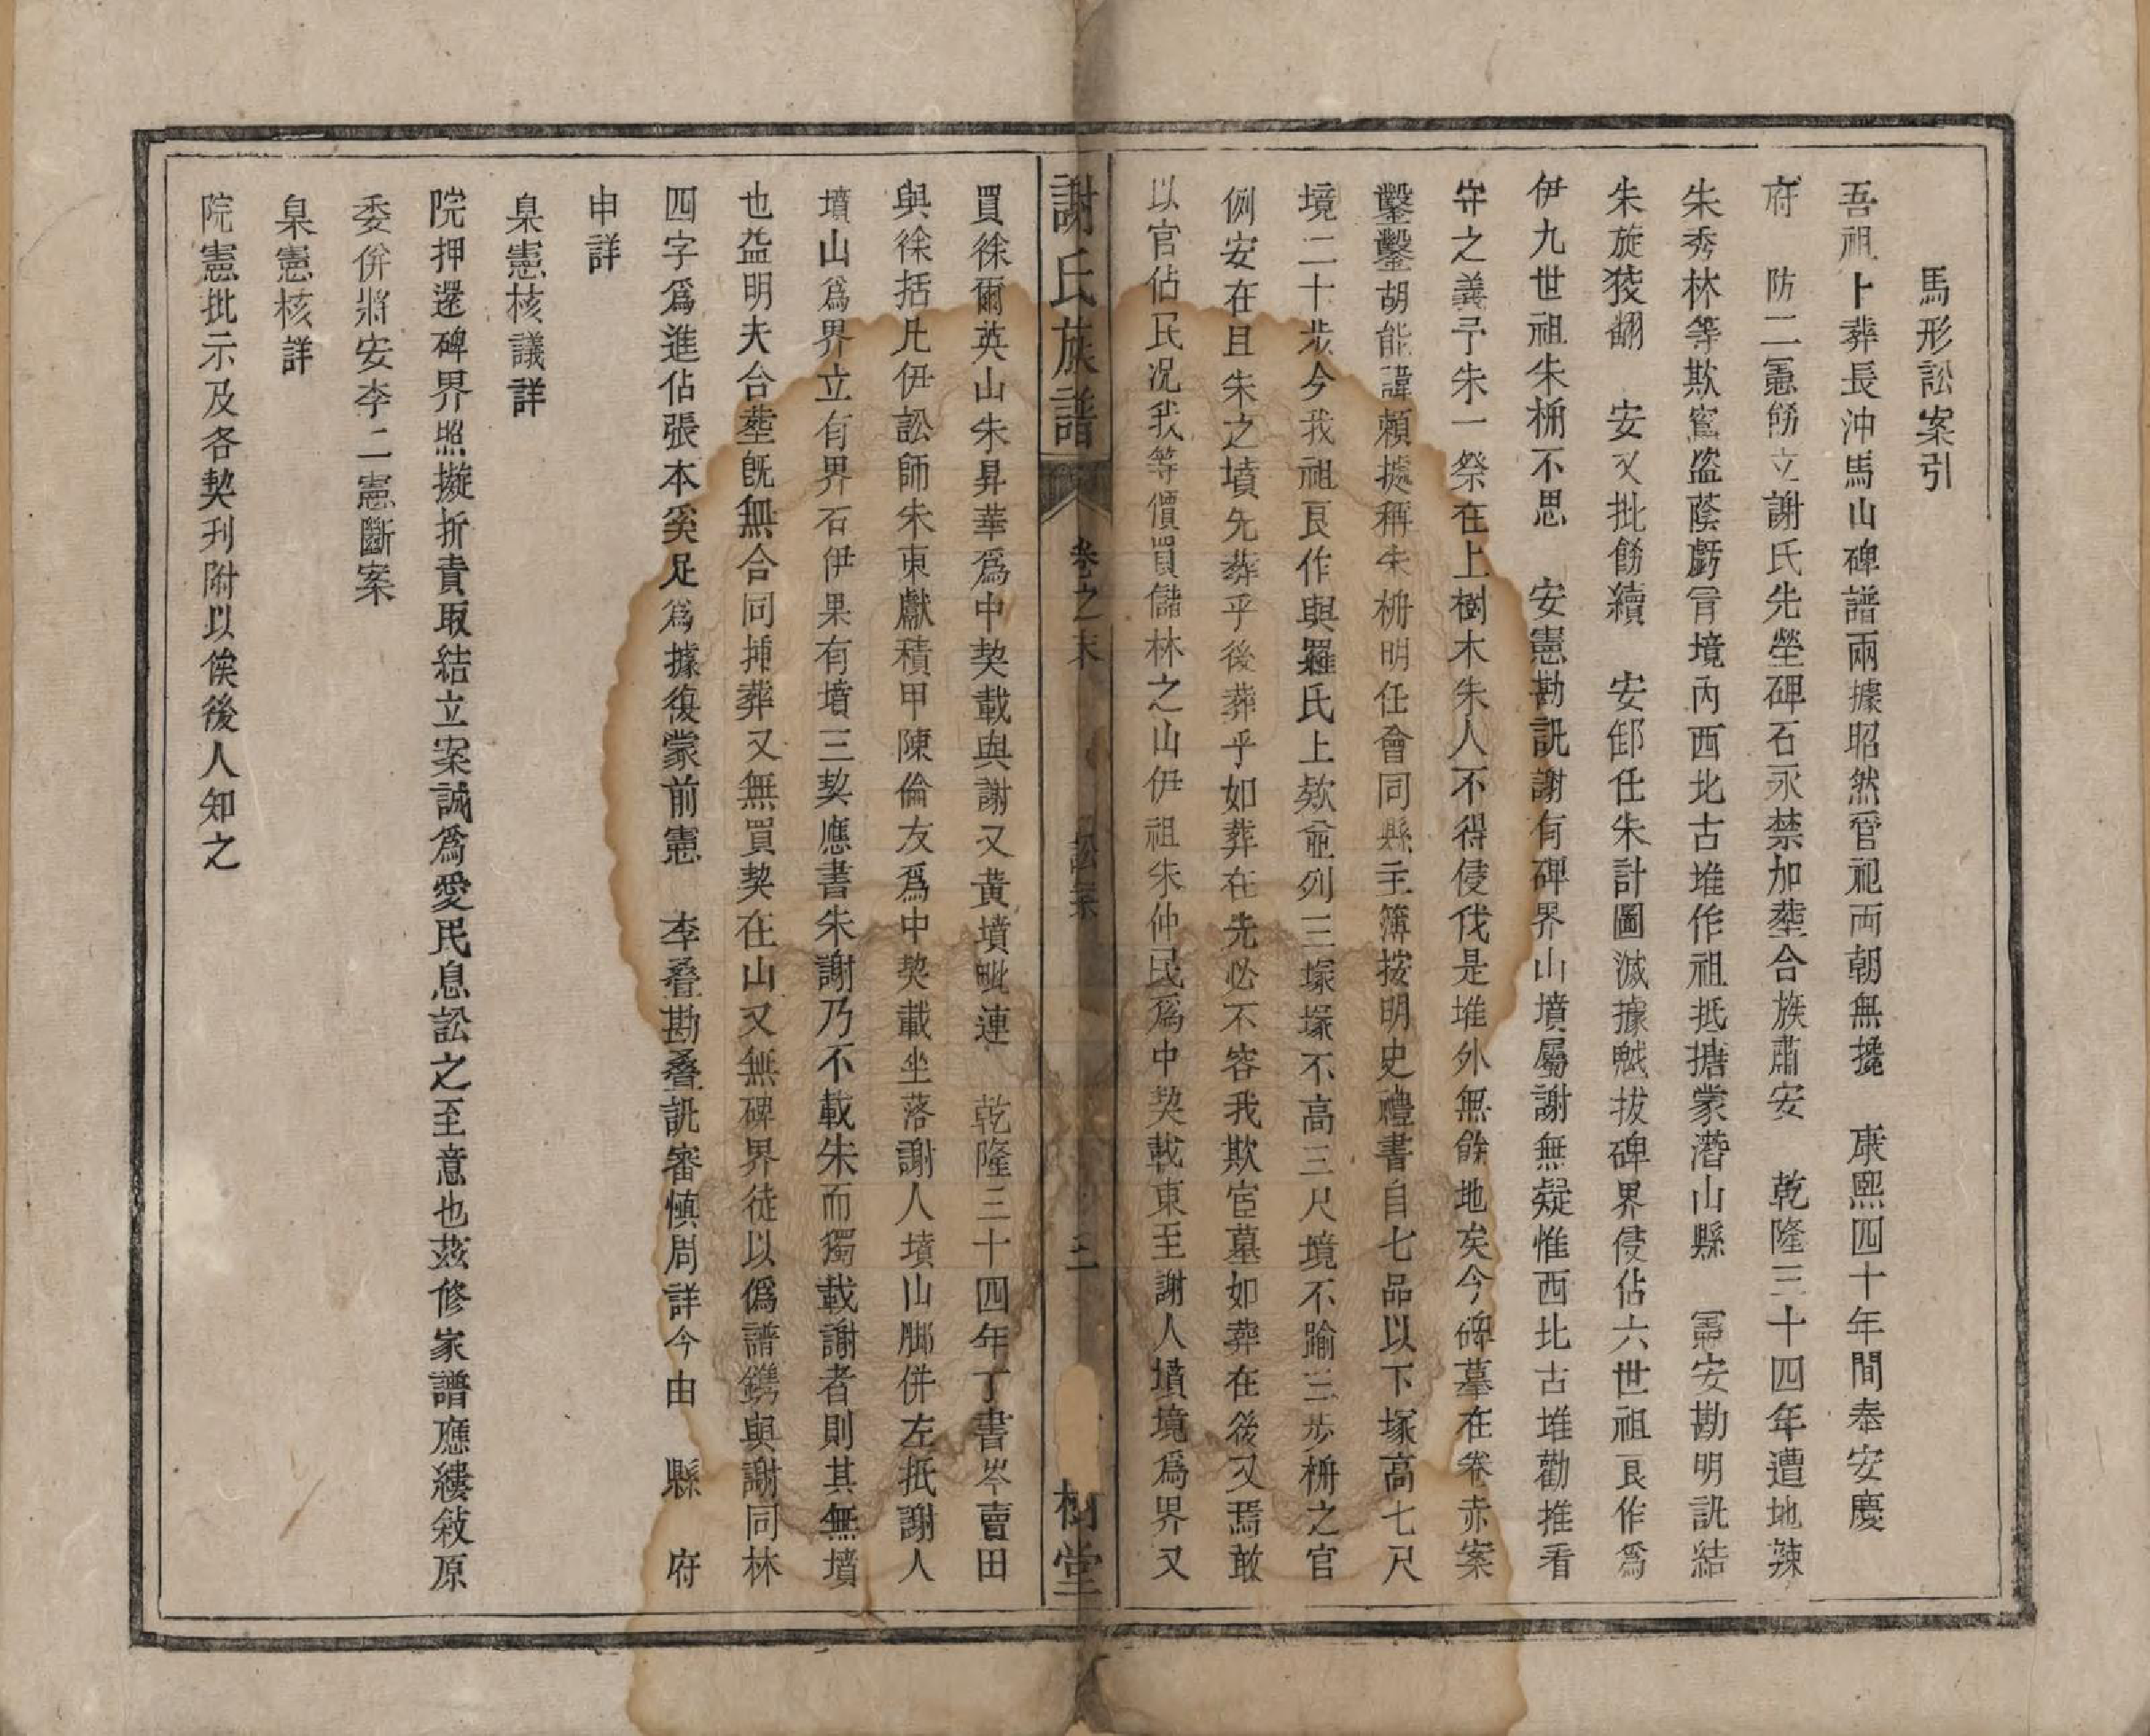 馬形訟案引
吾祖卜葬長沖馬山碑譜兩據昭然管祀兩朝無撓　康熙四十年間奉安慶
府　防二憲飭立謝氏先塋碑石永禁加塟合族肅安　乾隆三十四年遭地辣
朱秀林等欺窵盜蔭虧冒境內西北古堆作祖抵搪蒙潛山縣　憲安勘明訊結
朱旋狡翻　安又批飭續　安卸任朱計圖滅據贼拔碑界侵佔六世祖艮作爲
伊九世祖朱枏不思　安憲勘訊謝有碑界山墳屬謝無疑惟西北古堆勸推看
守之義予朱一祭在上樹木朱人不得侵伐是堆外無餘地矣今碑墓在卷赤案
鑿鑿胡能諱賴據稱朱枏明任會同縣主簿按明史禮書自七品以下塚高七尺
境二十步今我祖艮作與羅氏上欵並列三塚塚不高三尺境不踰三步枏之官
例安在且朱之墳先葬乎後葬乎如葬在先必不容我欺宦墓如葬在後又焉敢
以官佔民况我等價買儲林之山伊祖朱仲民爲中契載東至謝人墳境爲界又
謝氏族譜　卷之末　訟案　三　樹堂
買徐爾英山朱昇華爲中契載與謝又黃墳毗連　乾隆三十四年丁書岑賣田
與徐括凡伊訟師朱東獻積甲陳倫友爲中契載坐落謝人墳山脚併左抵謝人
墳山爲界立有界石伊果有墳三契應書朱謝乃不載朱而獨載謝者則其無墳
也益明夫合塟旣無合同插葬又無買契在山又無碑界徒以僞譜鐫與謝同林
四字爲進佔張本奚足爲據復蒙前憲　李叠勘叠訊審慎周詳今由　縣　府
申詳
臬憲核議詳
院押還碑界照擬折責取結立案誠爲愛民息訟之至意也茲修家譜應縷敍原
委併將安李二憲斷案
臬憲核詳
院憲批示及各契刋附以俟後人知之